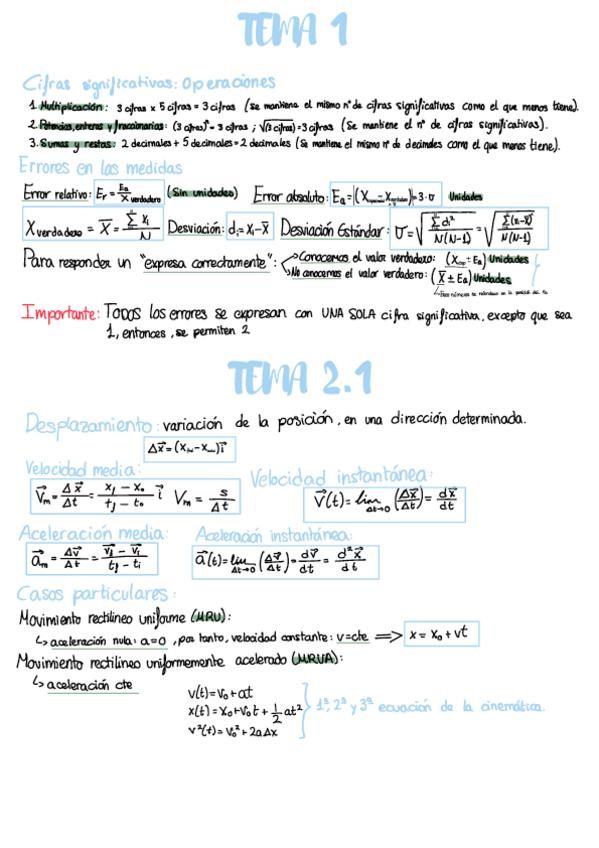 TEMA 1
Cifras significativas: Operaciones
1. Multiplicación: 3 cifras x 5 cifras = 3 cifras (Se mantiene el mismo nº de cifras significativas como el que menos tiene).
2. Potencias, enteras y fraccionarias: (3 cifras)ⁿ = 3 cifras ; √(3 cifras) = 3 cifras (Se mantiene el nº de cifras significativas).
3. Sumas y restas: 2 decimales + 5 decimales = 2 decimales (Se mantiene el mismo nº de decimales como el que menos tiene).
Errores en las medidas
Error relativo: Eᵣ = Eₐ / X verdadero (Sin unidades) Error absoluto: Eₐ = |(X - X)| = 3·σ Unidades
X verdadero = X̄ = Σ Xᵢ / N Desviación: dᵢ = Xᵢ - X̄ Desviación Estándar: σ = √(Σ dᵢ² / N(N-1)) = √(Σ(xᵢ-x̄)² / N(N-1))
Para responder un "expresa correctamente": Conocemos el valor verdadero: (X ± Eₐ) Unidades
No conocemos el valor verdadero: (X̄ ± Eₐ) Unidades
Importante: TODOS los errores se expresan con UNA SOLA cifra significativa, excepto que sea
1, entonces, se permiten 2
TEMA 2.1
Desplazamiento: variación de la posición, en una dirección determinada.
Δx⃗ = (X - X) i⃗
Velocidad media: Velocidad instantánea:
V⃗m = Δx⃗ / Δt = (xf - x₀) / (tf - t₀) i⃗ Vm = s / Δt V⃗(t) = lim Δt→0 (Δx⃗ / Δt) = dx⃗ / dt
Aceleración media: Aceleración instantánea:
a⃗m = Δv⃗ / Δt = (v⃗f - v⃗i) / (tf - ti) a⃗(t) = lim Δt→0 (Δv⃗ / Δt) = dv⃗ / dt = d²x⃗ / dt
Casos particulares:
Movimiento rectilineo uniforme (MRU):
↳ aceleración nula: a=0, por tanto, velocidad constante: v=cte ⇒ x = x₀ + vt
Movimiento rectilineo uniformemente acelerado (MRUA):
↳ aceleración cte
v(t) = v₀ + at
x(t) = x₀ + v₀t + 1/2 at² 1ª, 2ª y 3ª ecuación de la cinemática.
v²(t) = v₀² + 2aΔx